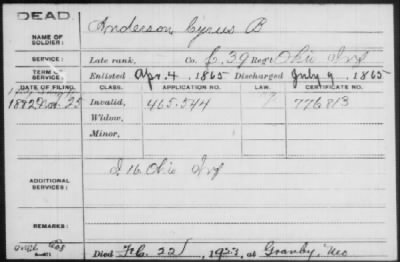 DEAD.
NAME OF SOLDIER: Anderson, Cyrus B
SERVICE: Late rank, Co. E, 39 Reg't Ohio Inf
TERM OF SERVICE: Enlisted Apr. 4, 1865 Discharged July 9, 1865
DATE OF FILING. CLASS. APPLICATION NO. LAW. CERTIFICATE NO.
1882 Nov. 25 Invalid, 465.544 776813
Widow,
Minor,
ADDITIONAL SERVICES: I 16 Ohio Inf
REMARKS:
Died Feb. 22, 1923, at Granby, Mo